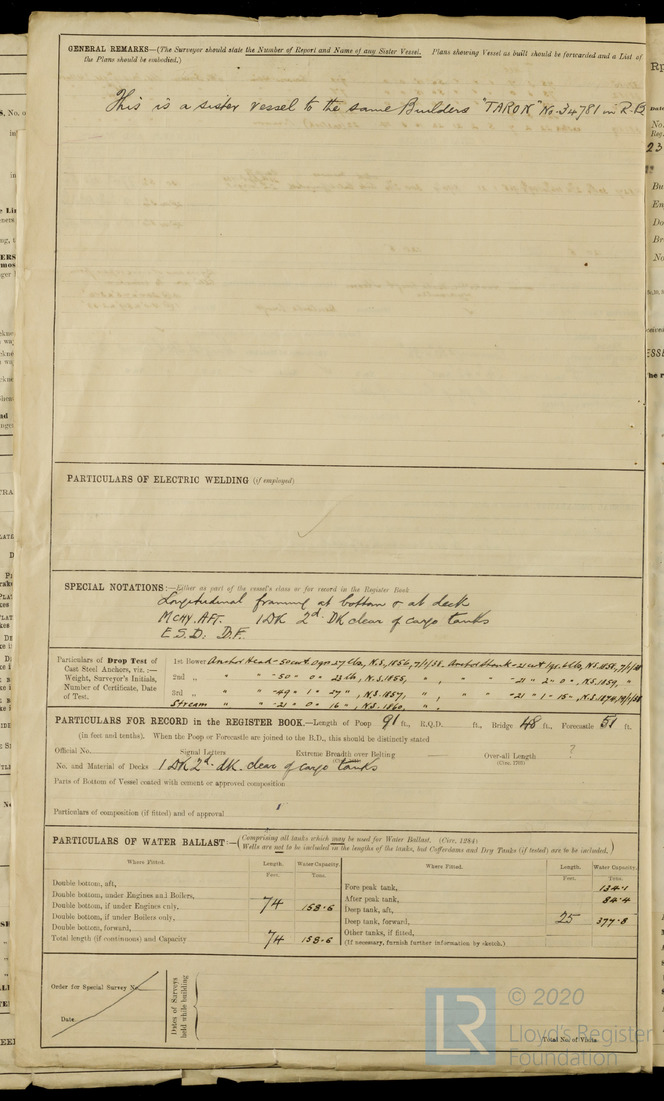 GENERAL REMARKS—(The Surveyor should state the Number of Report and Name of any Sister Vessel. Plans showing Vessel as built should be forwarded and a List of
the Plans should be embodied.)
This is a sister vessel to the same Builders "TARON" No. 34781 in R.B
PARTICULARS OF ELECTRIC WELDING (if employed)
SPECIAL NOTATIONS:—Either as part of the vessel's class or for record in the Register Book
Longitudinal framing at bottom & at deck
MCHY. AFT. 1 DK 2d. DK clear of cargo tanks
E.S.D. D.F.
Particulars of Drop Test of
Cast Steel Anchors, viz.:—
Weight, Surveyor's Initials,
Number of Certificate, Date
of Test.
1st Bower Anchor Head - 50 cwt. 0 qrs 27 lbs, N.S. 1856, 7/1/38. Anchor Shank - 21 cwt. 1 qr. 6 lbs, N.S. 1858, 7/1/38
2nd „ " " - 50 " 0 " 23 lb, N.S. 1855, " , " " - 21 " 2 " 0 " , N.S. 1859, "
3rd „ " " - 49 " 1 " 27 " , N.S. 1857, " , " " - 21 " 1 " 15 " , N.S. 1874,
Stream " " - 21 " 0 " 16 " , N.S. 1860, " .
PARTICULARS FOR RECORD in the REGISTER BOOK.—Length of Poop 91 ft., R.Q.D. ft., Bridge 48 ft., Forecastle 51 ft.
(in feet and tenths). When the Poop or Forecastle are joined to the B.D., this should be distinctly stated
Official No. Signal Letters Extreme Breadth over Belting Over-all Length ?
(Circ. 1703)
No. and Material of Decks 1 DK 2d. dk. clear of cargo tanks
Parts of Bottom of Vessel coated with cement or approved composition
Particulars of composition (if fitted) and of approval
PARTICULARS OF WATER BALLAST:—(Comprising all tanks which may be used for Water Ballast. (Circ. 1284)
Wells are not to be included in the lengths of the tanks, but Cofferdams and Dry Tanks (if tested) are to be included.)
Where Fitted. Length. Water Capacity.
Feet. Tons.
Double bottom, aft,
Double bottom, under Engines and Boilers,
Double bottom, if under Engines only, 74 158.6
Double bottom, if under Boilers only,
Double bottom, forward,
Total length (if continuous) and Capacity 74 158.6
Where Fitted. Length. Water Capacity.
Feet. Tons.
Fore peak tank, 134.1
After peak tank, 84.4
Deep tank, aft,
Deep tank, forward, 25 377.8
Other tanks, if fitted,
(If necessary, furnish further information by sketch.)
Order for Special Survey No.
Date
Dates of Surveys
held while building
Total No. of Visits
LR
© 2020
Lloyd's Register
Foundation